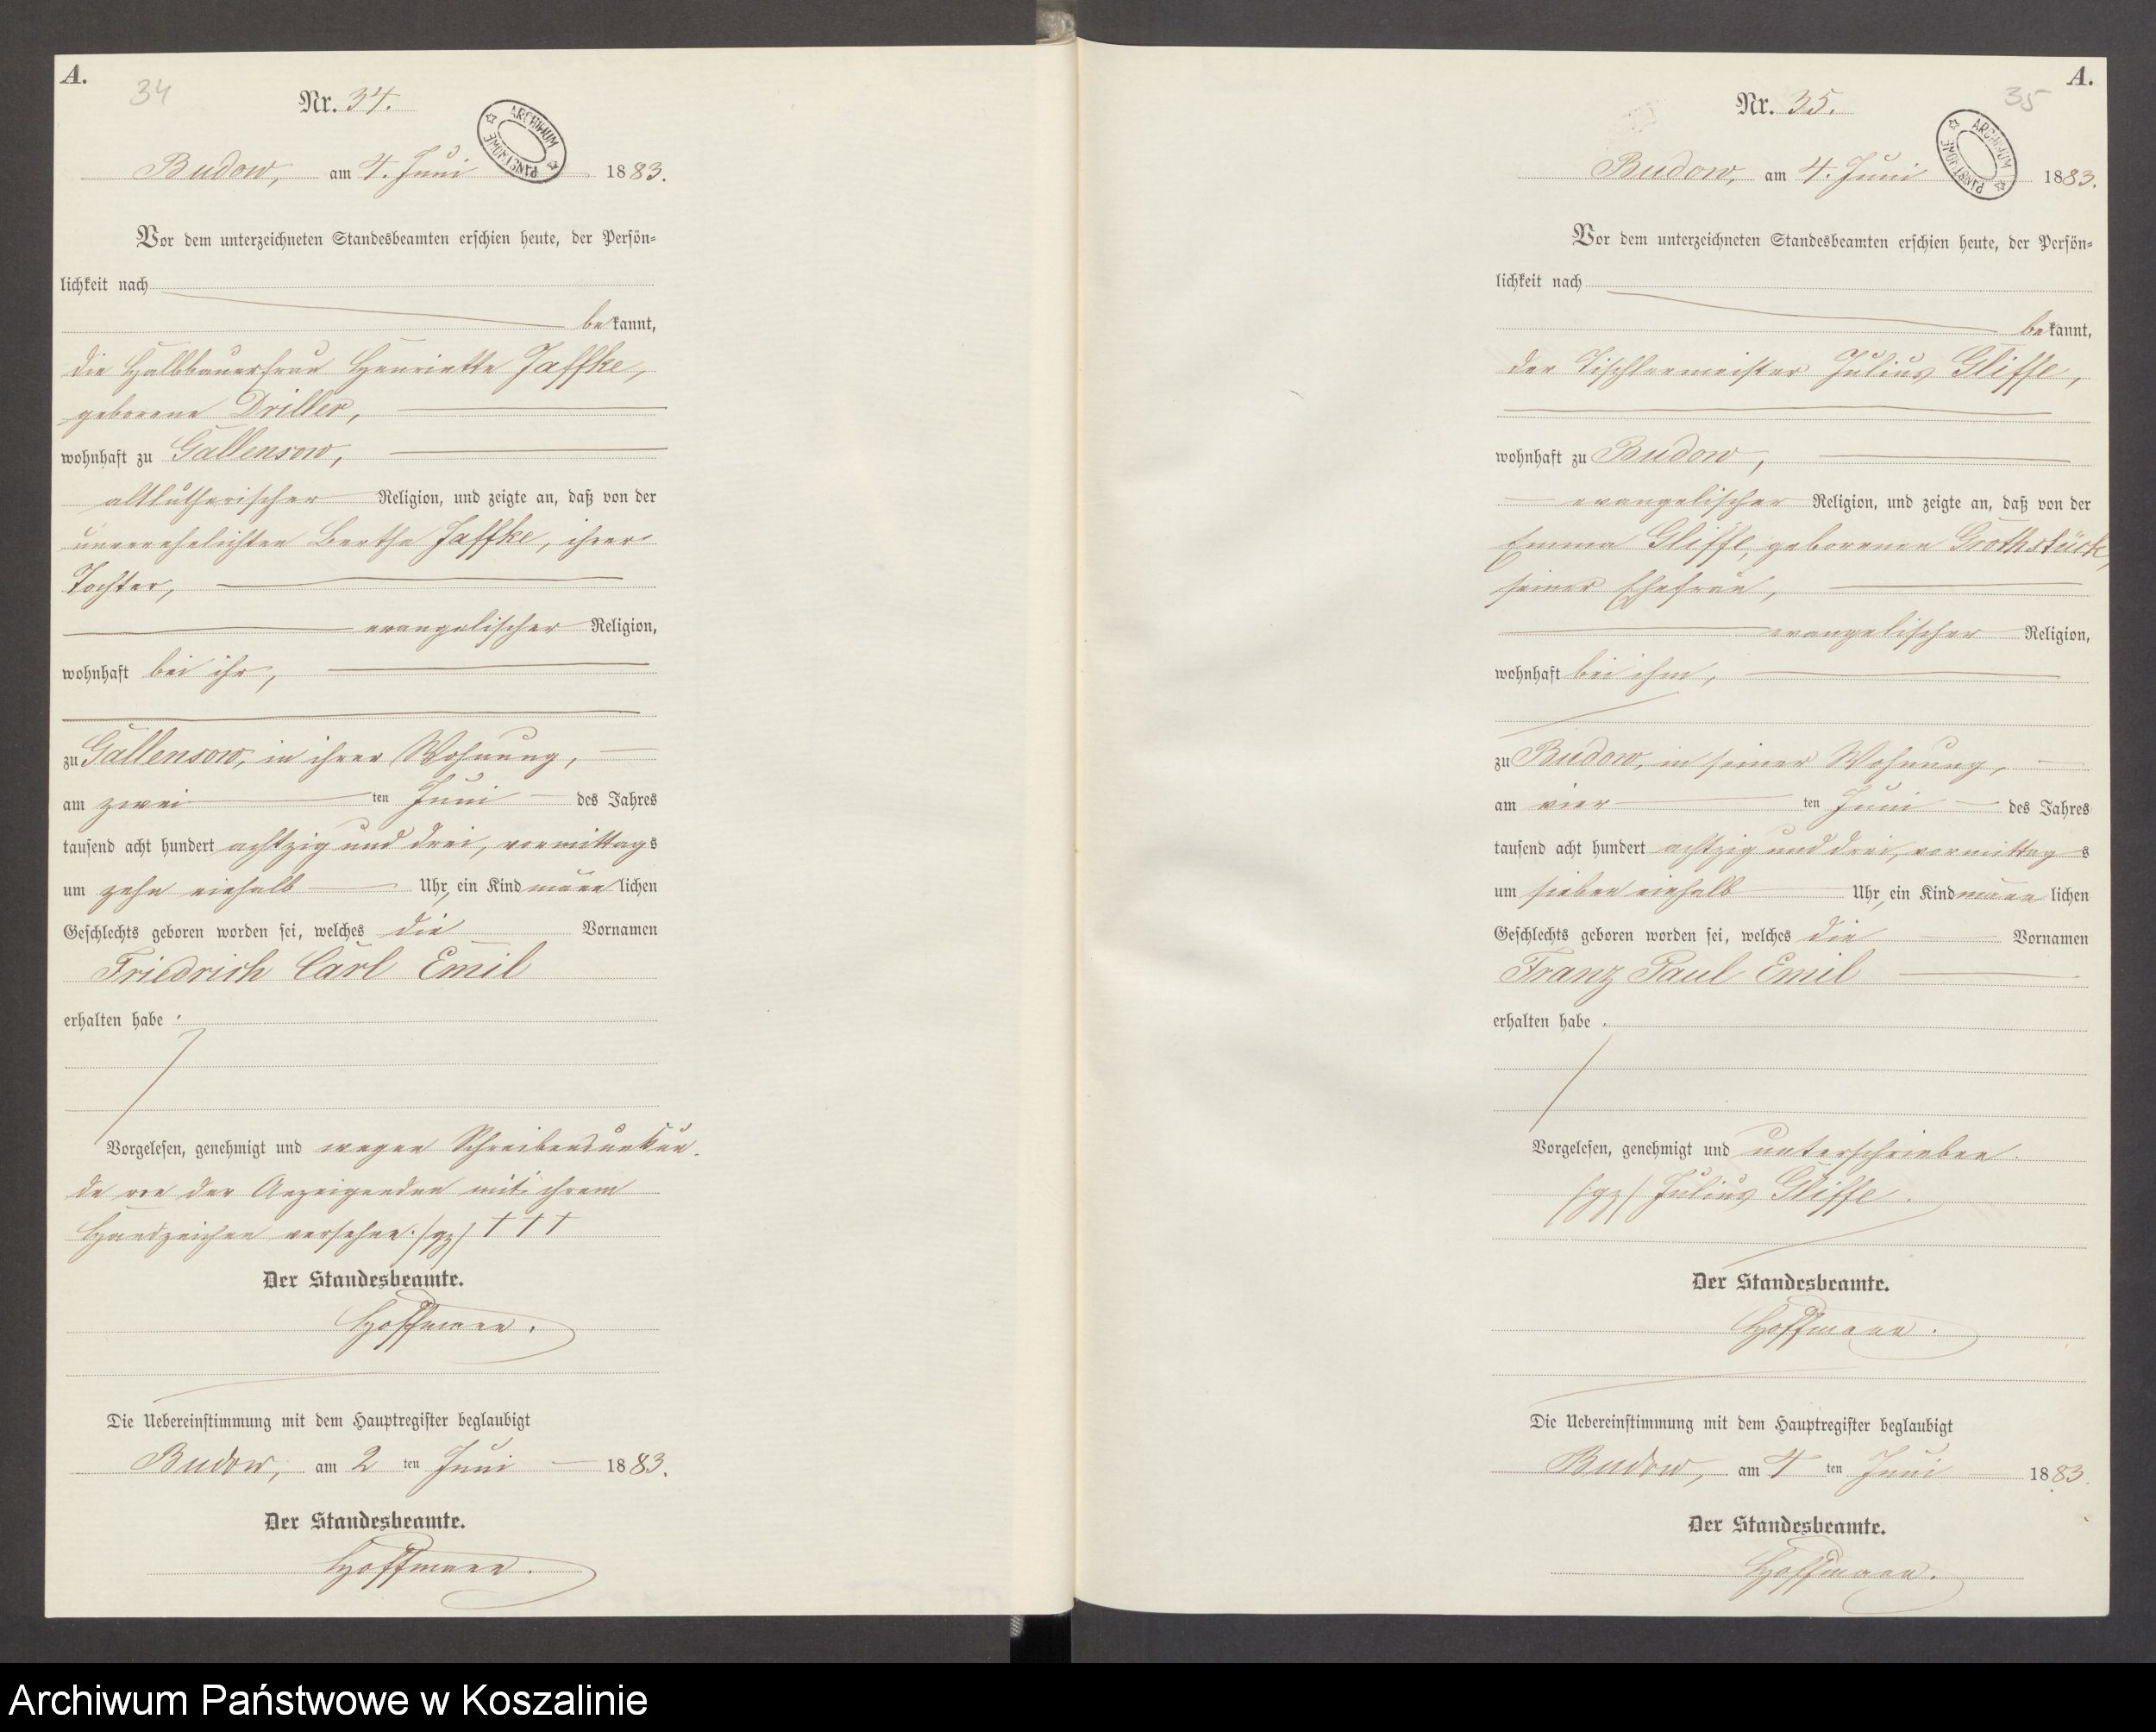 A.
34
Nr. 34.
ARCHIWUM PAŃSTWOWE
Budow, am 4. Juni 1883.
Vor dem unterzeichneten Standesbeamten erschien heute, der Persön=
lichkeit nach
bekannt,
die Halbbauerfrau Henriette Jaffke,
geborene Driller,
wohnhaft zu Gallensow,
altlutherischer Religion, und zeigte an, daß von der
unverehelichten Bertha Jaffke, ihrer
Tochter,
evangelischer Religion,
wohnhaft bei ihr,
zu Gallensow, in ihrer Wohnung,
am zwei ten Juni des Jahres
tausend acht hundert achtzig und drei, vormittags
um zehn einhalb Uhr, ein Kind männlichen
Geschlechts geboren worden sei, welches die Vornamen
Friedrich Carl Emil
erhalten habe.
Vorgelesen, genehmigt und wegen Schreibensunkun-
de von der Anzeigenden mit ihrem
Handzeichen versehen. (gz) † † †
Der Standesbeamte.
Hoffmann.
Die Uebereinstimmung mit dem Hauptregister beglaubigt
Budow, am 2 ten Juni 1883.
Der Standesbeamte.
Hoffmann.
A.
35
Nr. 35.
ARCHIWUM PAŃSTWOWE
Budow, am 4. Juni 1883.
Vor dem unterzeichneten Standesbeamten erschien heute, der Persön=
lichkeit nach
bekannt,
der Tischlermeister Julius Gliffe,
wohnhaft zu Budow,
evangelischer Religion, und zeigte an, daß von der
Emma Gliffe, geborenen Grothstück,
seiner Ehefrau,
evangelischer Religion,
wohnhaft bei ihm,
zu Budow, in seiner Wohnung,
am vier ten Juni des Jahres
tausend acht hundert achtzig und drei, vormittags
um sieben einhalb Uhr, ein Kind männlichen
Geschlechts geboren worden sei, welches die Vornamen
Franz Paul Emil
erhalten habe.
Vorgelesen, genehmigt und unterschrieben.
(gz) Julius Gliffe.
Der Standesbeamte.
Hoffmann.
Die Uebereinstimmung mit dem Hauptregister beglaubigt
Budow, am 4 ten Juni 1883.
Der Standesbeamte.
Hoffmann.
Archiwum Państwowe w Koszalinie